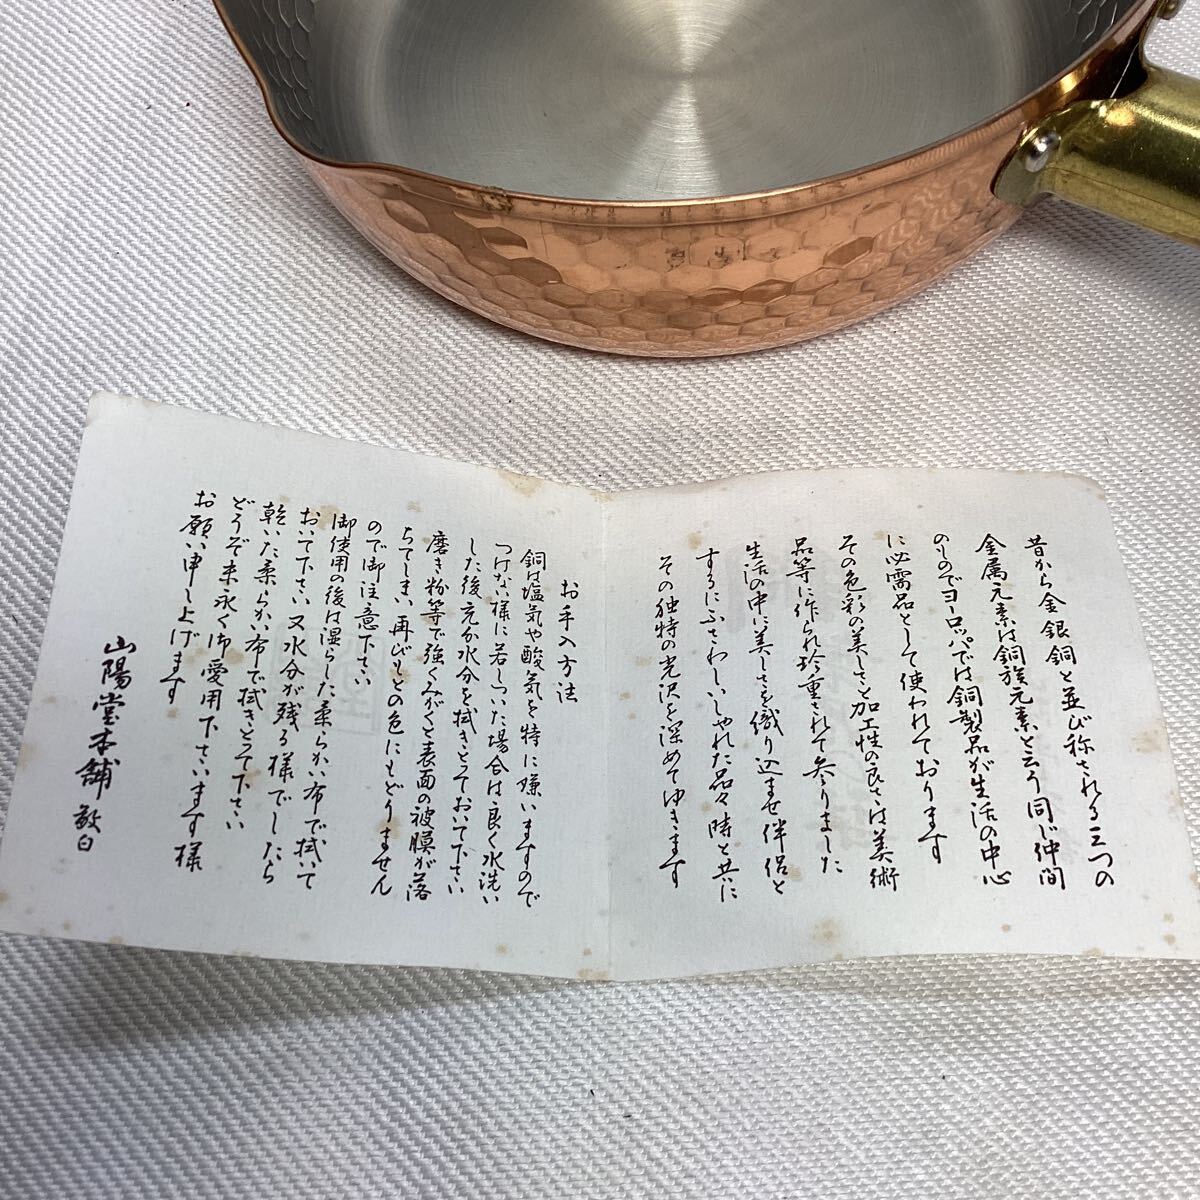 昔から金銀銅と並び称される三つの
金属元素は銅族元素と云う同じ仲間
のものでヨーロッパでは銅製品が生活の中心
に必需品として使われております
その色彩の美しさと加工性の良さは美術
品等に作られ珍重されて参りました
生活の中に美しさを織り込ませ伴侶と
するにふさわしいしゃれた品々時と共に
その独特の光沢を深めてゆきます
お手入方法
銅は塩気や酸気を特に嫌いますので
つけない様に若しついた場合は良く水洗い
した後充分水分を拭きとっておいて下さい
磨き粉等で強くみがくと表面の被膜が落
ちてしまい再びもとの色にもどりません
ので御注意下さい
御使用の後は湿らした柔らかい布で拭いて
おいて下さい又水分が残る様でしたら
乾いた柔らかい布で拭きとって下さい
どうぞ末永く御愛用下さいます様
お願い申し上げます
山陽堂本舗 敬白